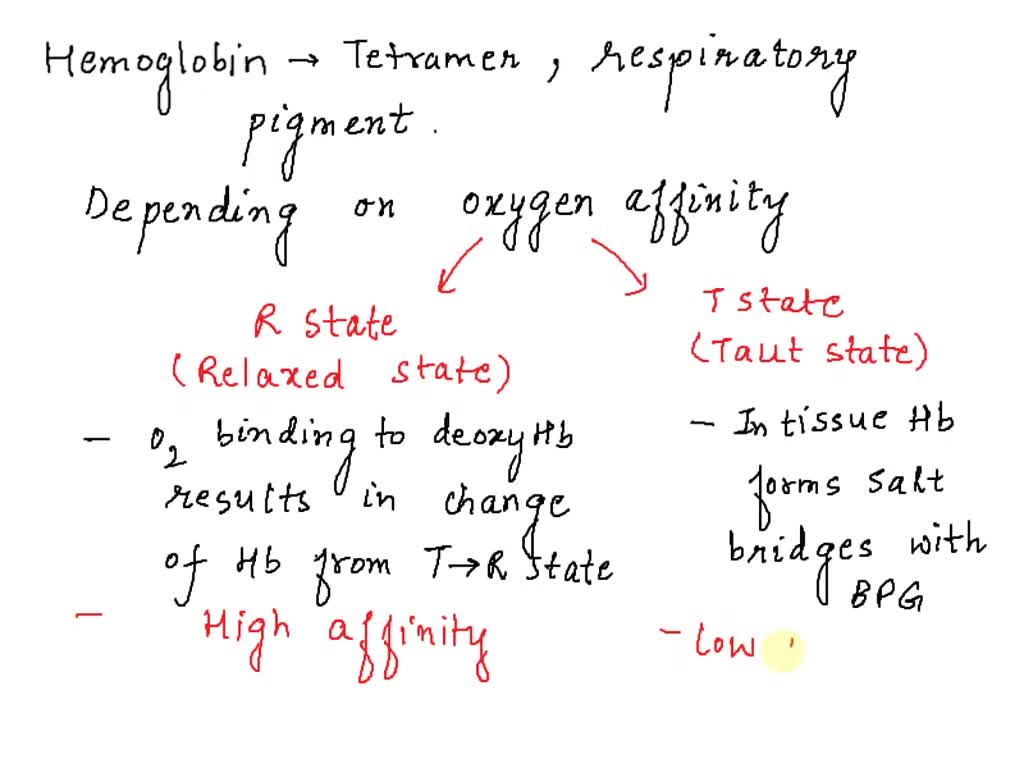 Hemoglobin → Tetramer, respiratory
pigment.
Depending on oxygen affinity
R state
(Relaxed state)
- O2 binding to deoxyHb
results in change
of Hb from T→R state
- High affinity
T state
(Taut state)
- In tissue Hb
forms salt
bridges with
BPG
- Low